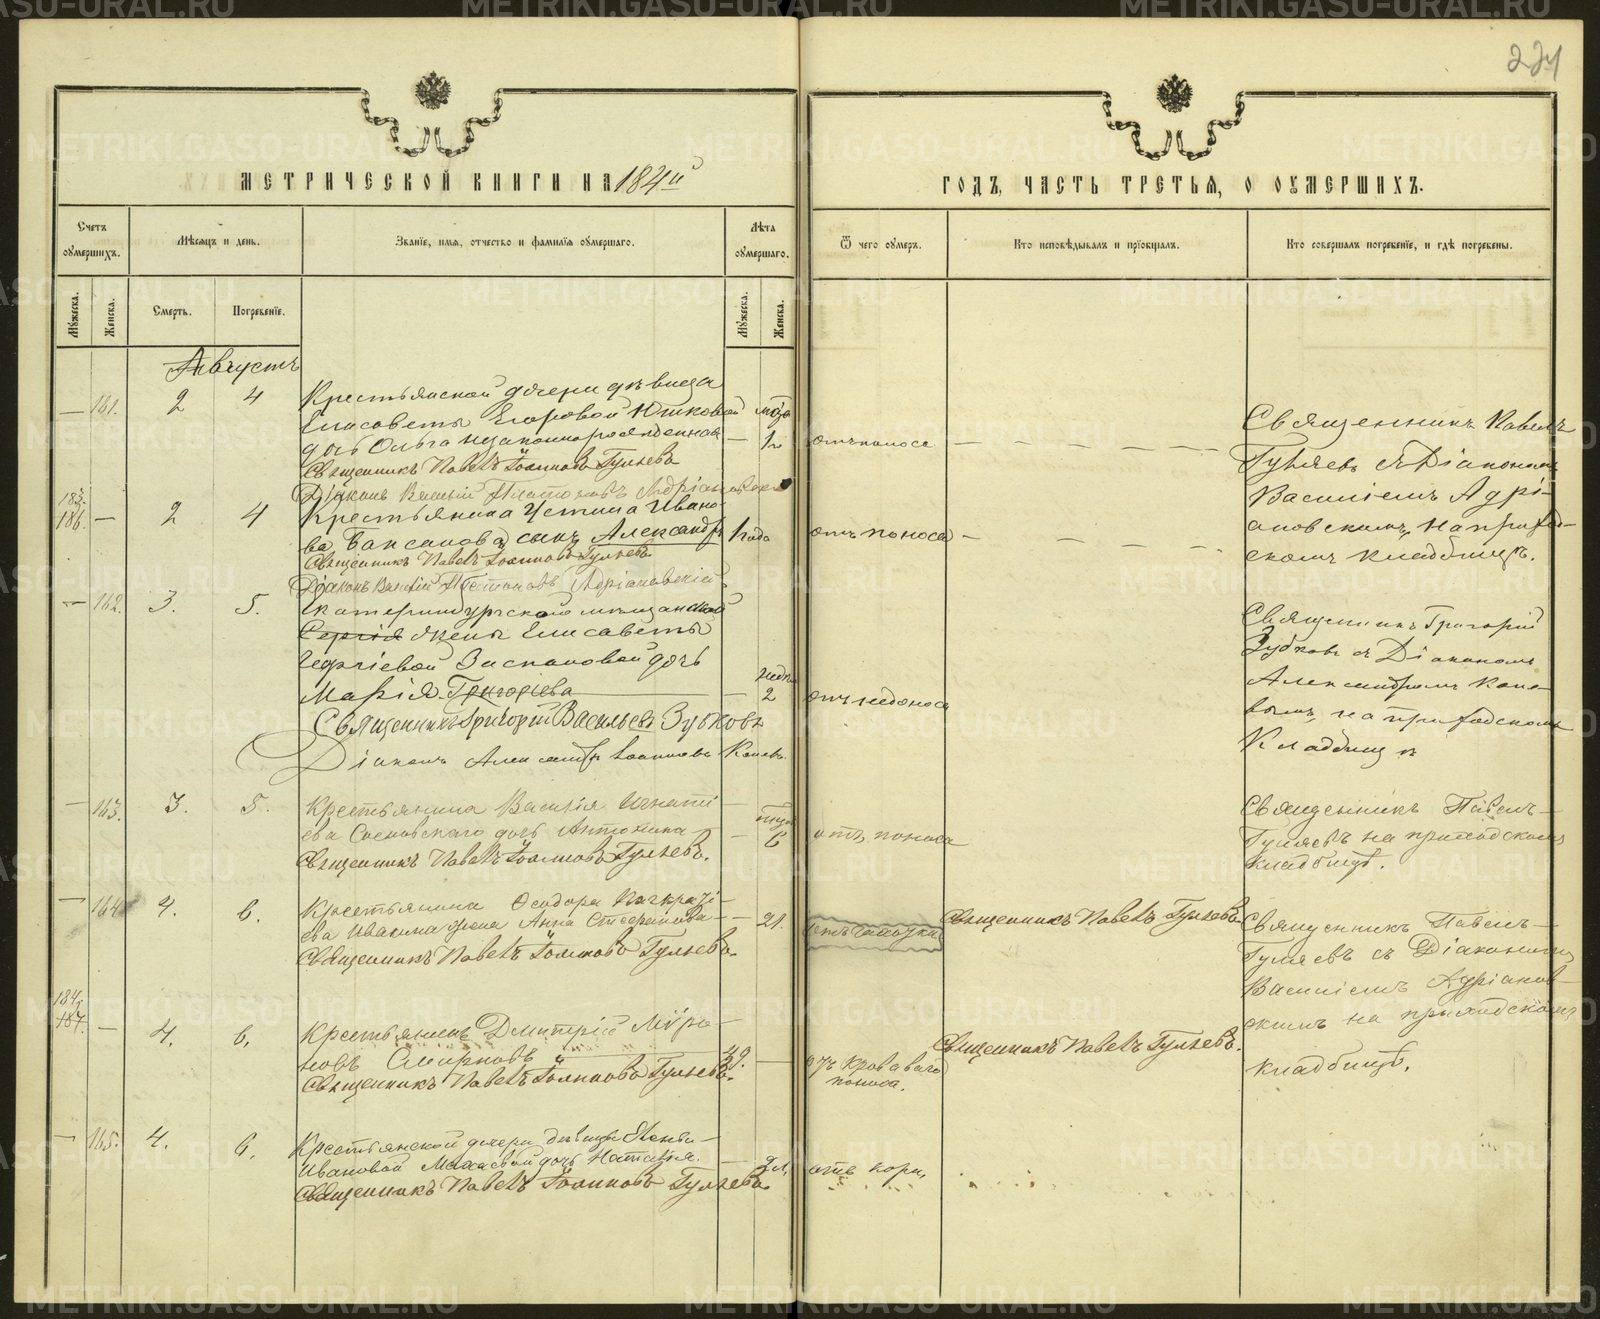 224
МЕТРИЧЕСКОЙ КНИГИ НА 184
ГОДЪ, ЧАСТЬ ТРЕТЬЯ, О ОУМЕРШИХЪ.
Счетъ оумершихъ.
Мѣсяцъ и день.
Званіе, имя, отчество и фамилія оумершаго.
Лѣта оумершаго.
Ѿ чего оумеръ.
Кто исповѣдывалъ и прїобщалъ.
Кто совершалъ погребеніе, и гдѣ погребены.
Мужеска.
Женска.
Смерть.
Погребеніе.
Мужеска.
Женска.
Августъ
— 161. 2 4
Крестьянской дочери дѣвицы
Елисаветы Егоровой Юшковой
дочь Ольга незаконнорожденная — 12
отъ поноса
Священникъ Павелъ Іоанновъ Гуляевъ
Діаконъ Василій Платоновъ Адріановскій
Священникъ Павелъ
Гуляевъ съ Діакономъ
Василіемъ Адрі-
ановскимъ, на приход-
скомъ кладбищѣ.
186. — 2 4
Крестьянина Устина Ивано-
ва сынъ Александръ 1 года
отъ поноса
Священникъ Павелъ Іоанновъ Гуляевъ
Діаконъ Василій Платоновъ Адріановскій
— 162. 3. 5.
Екатеринбургской мѣщанской
Сергія жены Елисаветы
Георгіевой дочь
Марія Григоріева — 2
отъ недоноса
Священникъ Григорій Васильевъ Зубковъ
Діаконъ Александръ Іоанновъ Коневъ.
Священникъ Григорій
Зубковъ съ Діакономъ
Александромъ Коне-
вымъ, на приходскомъ
Кладбищѣ
— 163. 3. 5.
Крестьянина Василія Игнаті-
ева Сосновскаго дочь Антонина — 6
отъ поноса
Священникъ Павелъ Іоанновъ Гуляевъ.
Священникъ Павелъ
Гуляевъ на приходскомъ
кладбищѣ.
— 164 4. 6.
Крестьянина Ѳеодора Панкраті-
ева Ивакина жена Анна Стефанова — 21.
отъ чахотки
Священникъ Павелъ Іоанновъ Гуляевъ.
Священникъ Павелъ Гуляевъ.
Священникъ Павелъ
Гуляевъ съ Діакономъ
Василіемъ Адріанов-
скимъ на приходскомъ
кладбищѣ.
187. — 4. 6.
Крестьянинъ Димитрій Міро-
новъ Смирновъ 49. —
отъ кроваваго
поноса.
Священникъ Павелъ Іоанновъ Гуляевъ.
Священникъ Павелъ Гуляевъ.
— 165. 4. 6.
Крестьянской дочери дѣвицы
Ивановой дочь Наталія. — 2 л.
отъ кори,
Священникъ Павелъ Іоанновъ Гуляевъ.